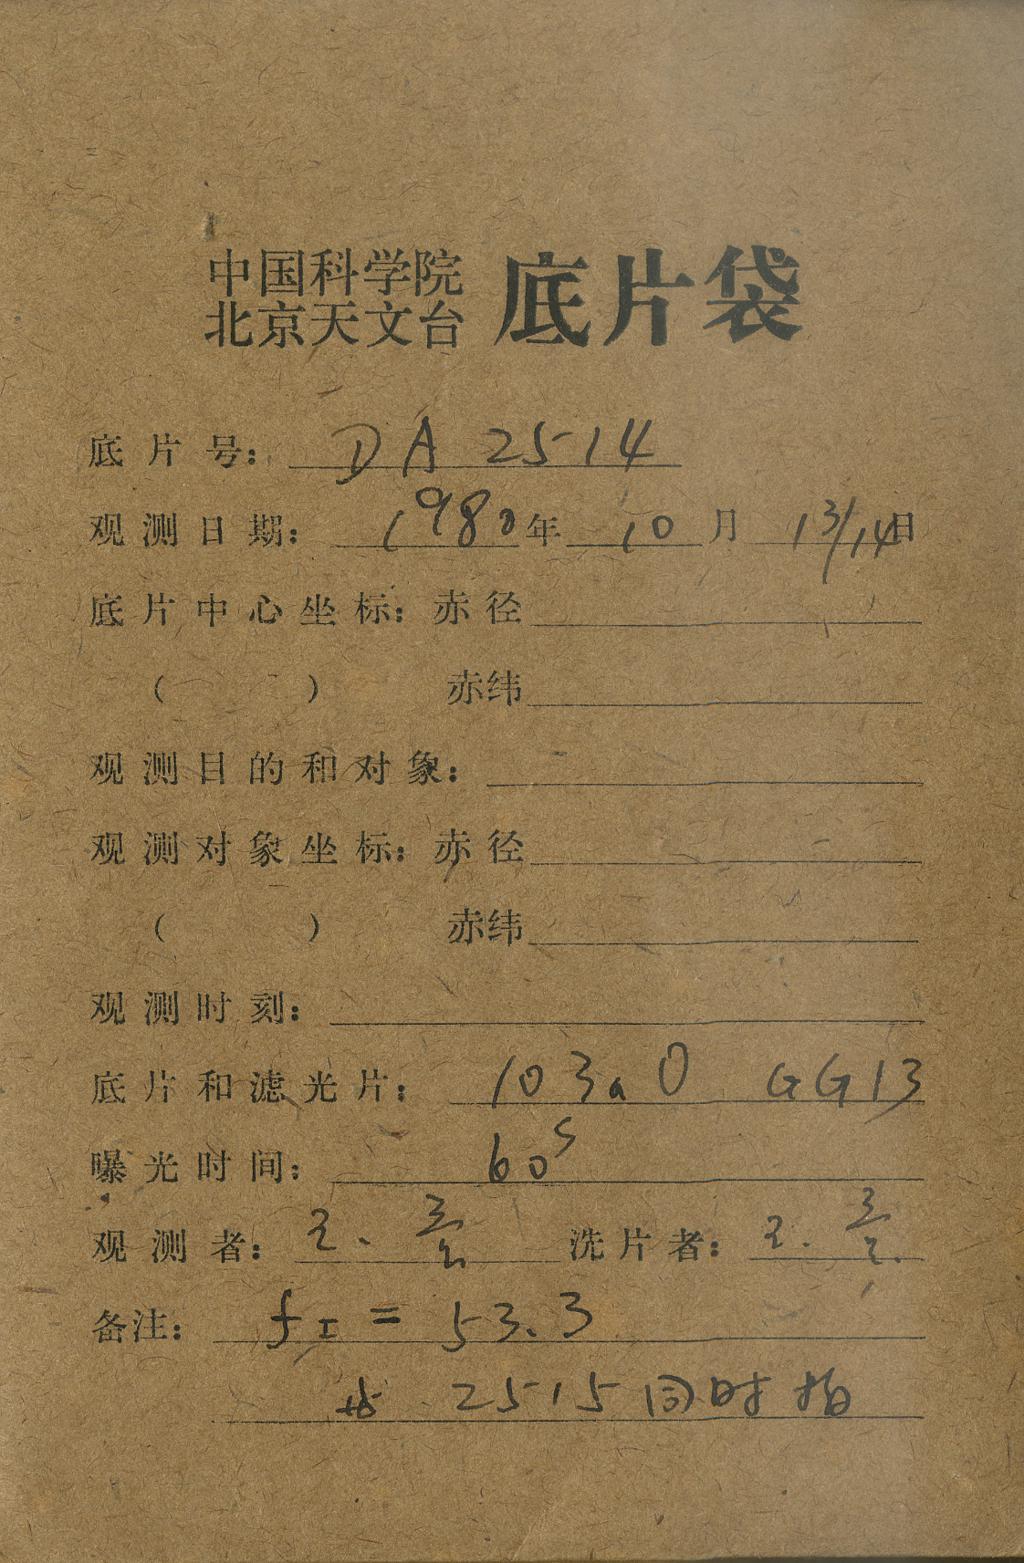 中国科学院
北京天文台
底片袋
底片号: DA 2514
观测日期: 1980年 10月 13/14日
底片中心坐标: 赤径
( ) 赤纬
观测目的和对象:
观测对象坐标: 赤径
( ) 赤纬
观测时刻:
底片和滤光片: 103aO GG13
曝光时间: 60s
观测者: 洗片者:
备注: fI = 53.3
2515同时拍